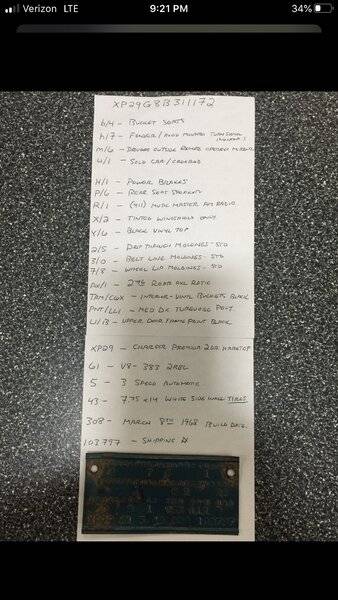 Verizon LTE 9:21 PM 34%
XP29G8B311172
6/4 - BUCKET SEATS
h/7 - FENDER/HOOD MOUNTED TURN SIGNAL
m/6 - DRIVERS OUTSIDE REMOTE MIRROR
U/1 - SOLD CAR/
H/1 - POWER BRAKES
P/6 - REAR SEAT SPEAKERS
R/1 - (411) MUSIC MASTER AM RADIO
X/2 - TINTED WINDSHIELD ONLY
Y/6 - BLACK VINYL TOP
2/5 - DRIP THROUGH MOLDINGS - STD
3/0 - BELT LINE MOLDINGS - STD
7/8 - WHEEL LIP MOLDINGS - STD
AX/1 - REAR AXLE RATIO
TRM/C6X - INTERIOR - VINYL BUCKETS BLACK
PNT/LL1 - MED DK TURQUOISE POLY
U/B - UPPER DOOR FRAME PAINT BLACK
XP29 - CHARGER PREMIUM 2DR HARDTOP
61 - V8 - 383 2BBL
5 - 3 SPEED AUTOMATIC
43 - 775x14 WHITE SIDE WALL TIRES
308 - MARCH 8TH 1968 BUILD DATE
103797 - SHIPPING #